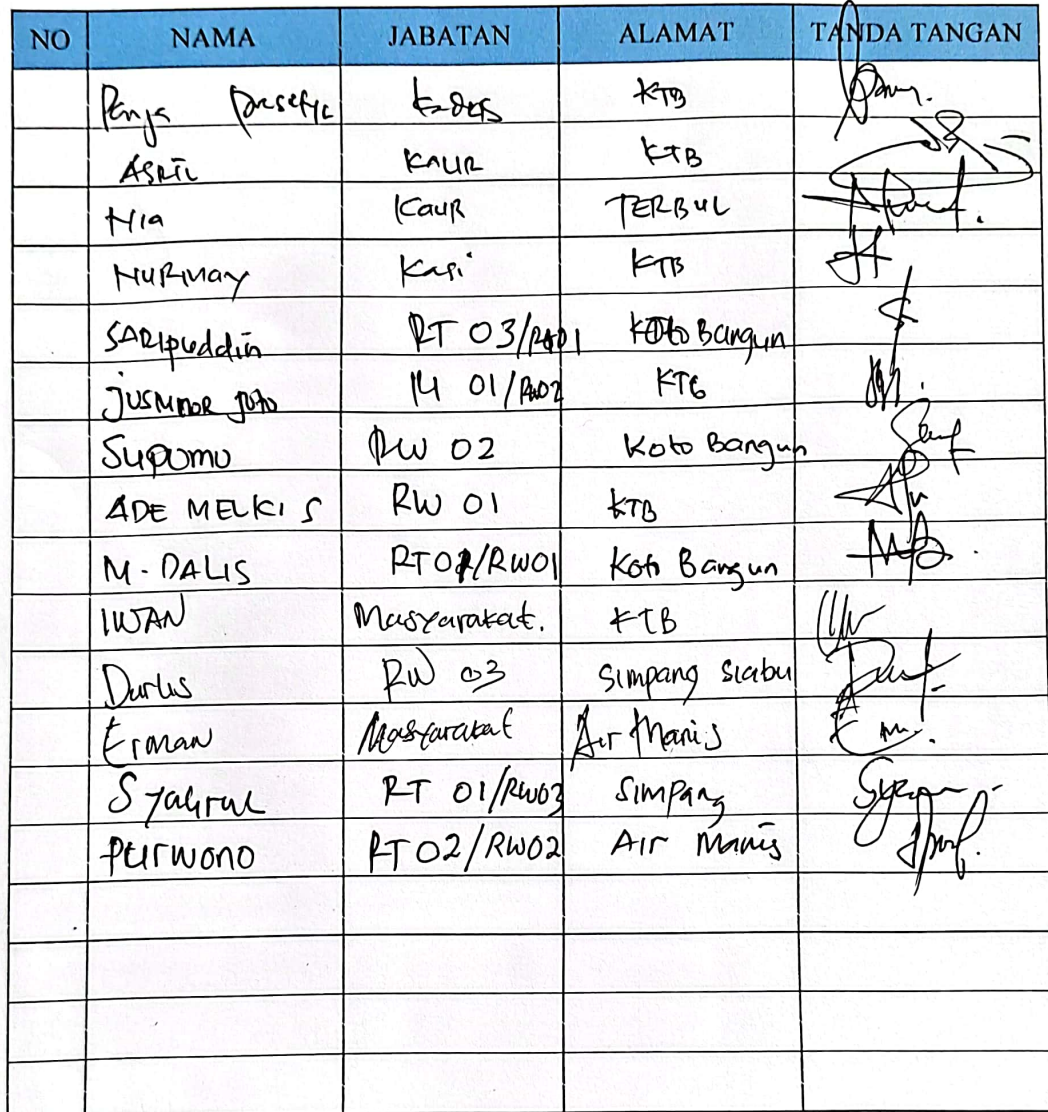 NO NAMA JABATAN ALAMAT TANDA TANGAN
kades KTB
ASRIL KAUR KTB
Nia KauR TERBUL
NURMAY Kasi KTB
SARIPuddin RT 03/RW01 Koto Bangun
JUSMNOR 01/RW02 KTB
Supomo RW 02 Koto Bangun
ADE MELKI S RW 01 KTB
M. DALIS /RW01 Koto Bangun
IWAN Masyarakat. KTB
Darlis RW 03 Simpang Siabu
Erman Masyarakat Air Manis
Syahrul RT 01/RW03 Simpang
PURWONO RT 02/RW02 Air Manis